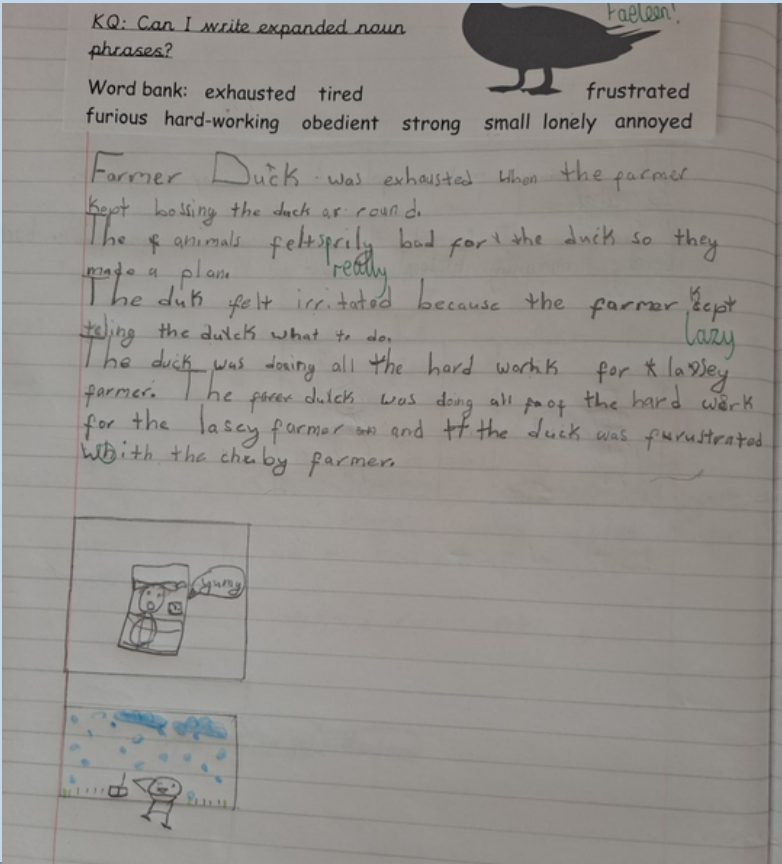 KQ: Can I write expanded noun
phrases?
Word bank: exhausted tired frustrated
furious hard-working obedient strong small lonely annoyed
Farmer Duck was exhausted when the farmer
kept bossing the duck around.
The animals felt bad for the duck so they
really
made a plan.
The duk felt irritated because the farmer kept
lazy
teling the dulck what to do.
The duck was doning all the hard workk for * lassey
farmer. The dulck was doing all of the hard work
for the lasey farmer and the duck was furustrated
whith the chuby farmer.
yumy